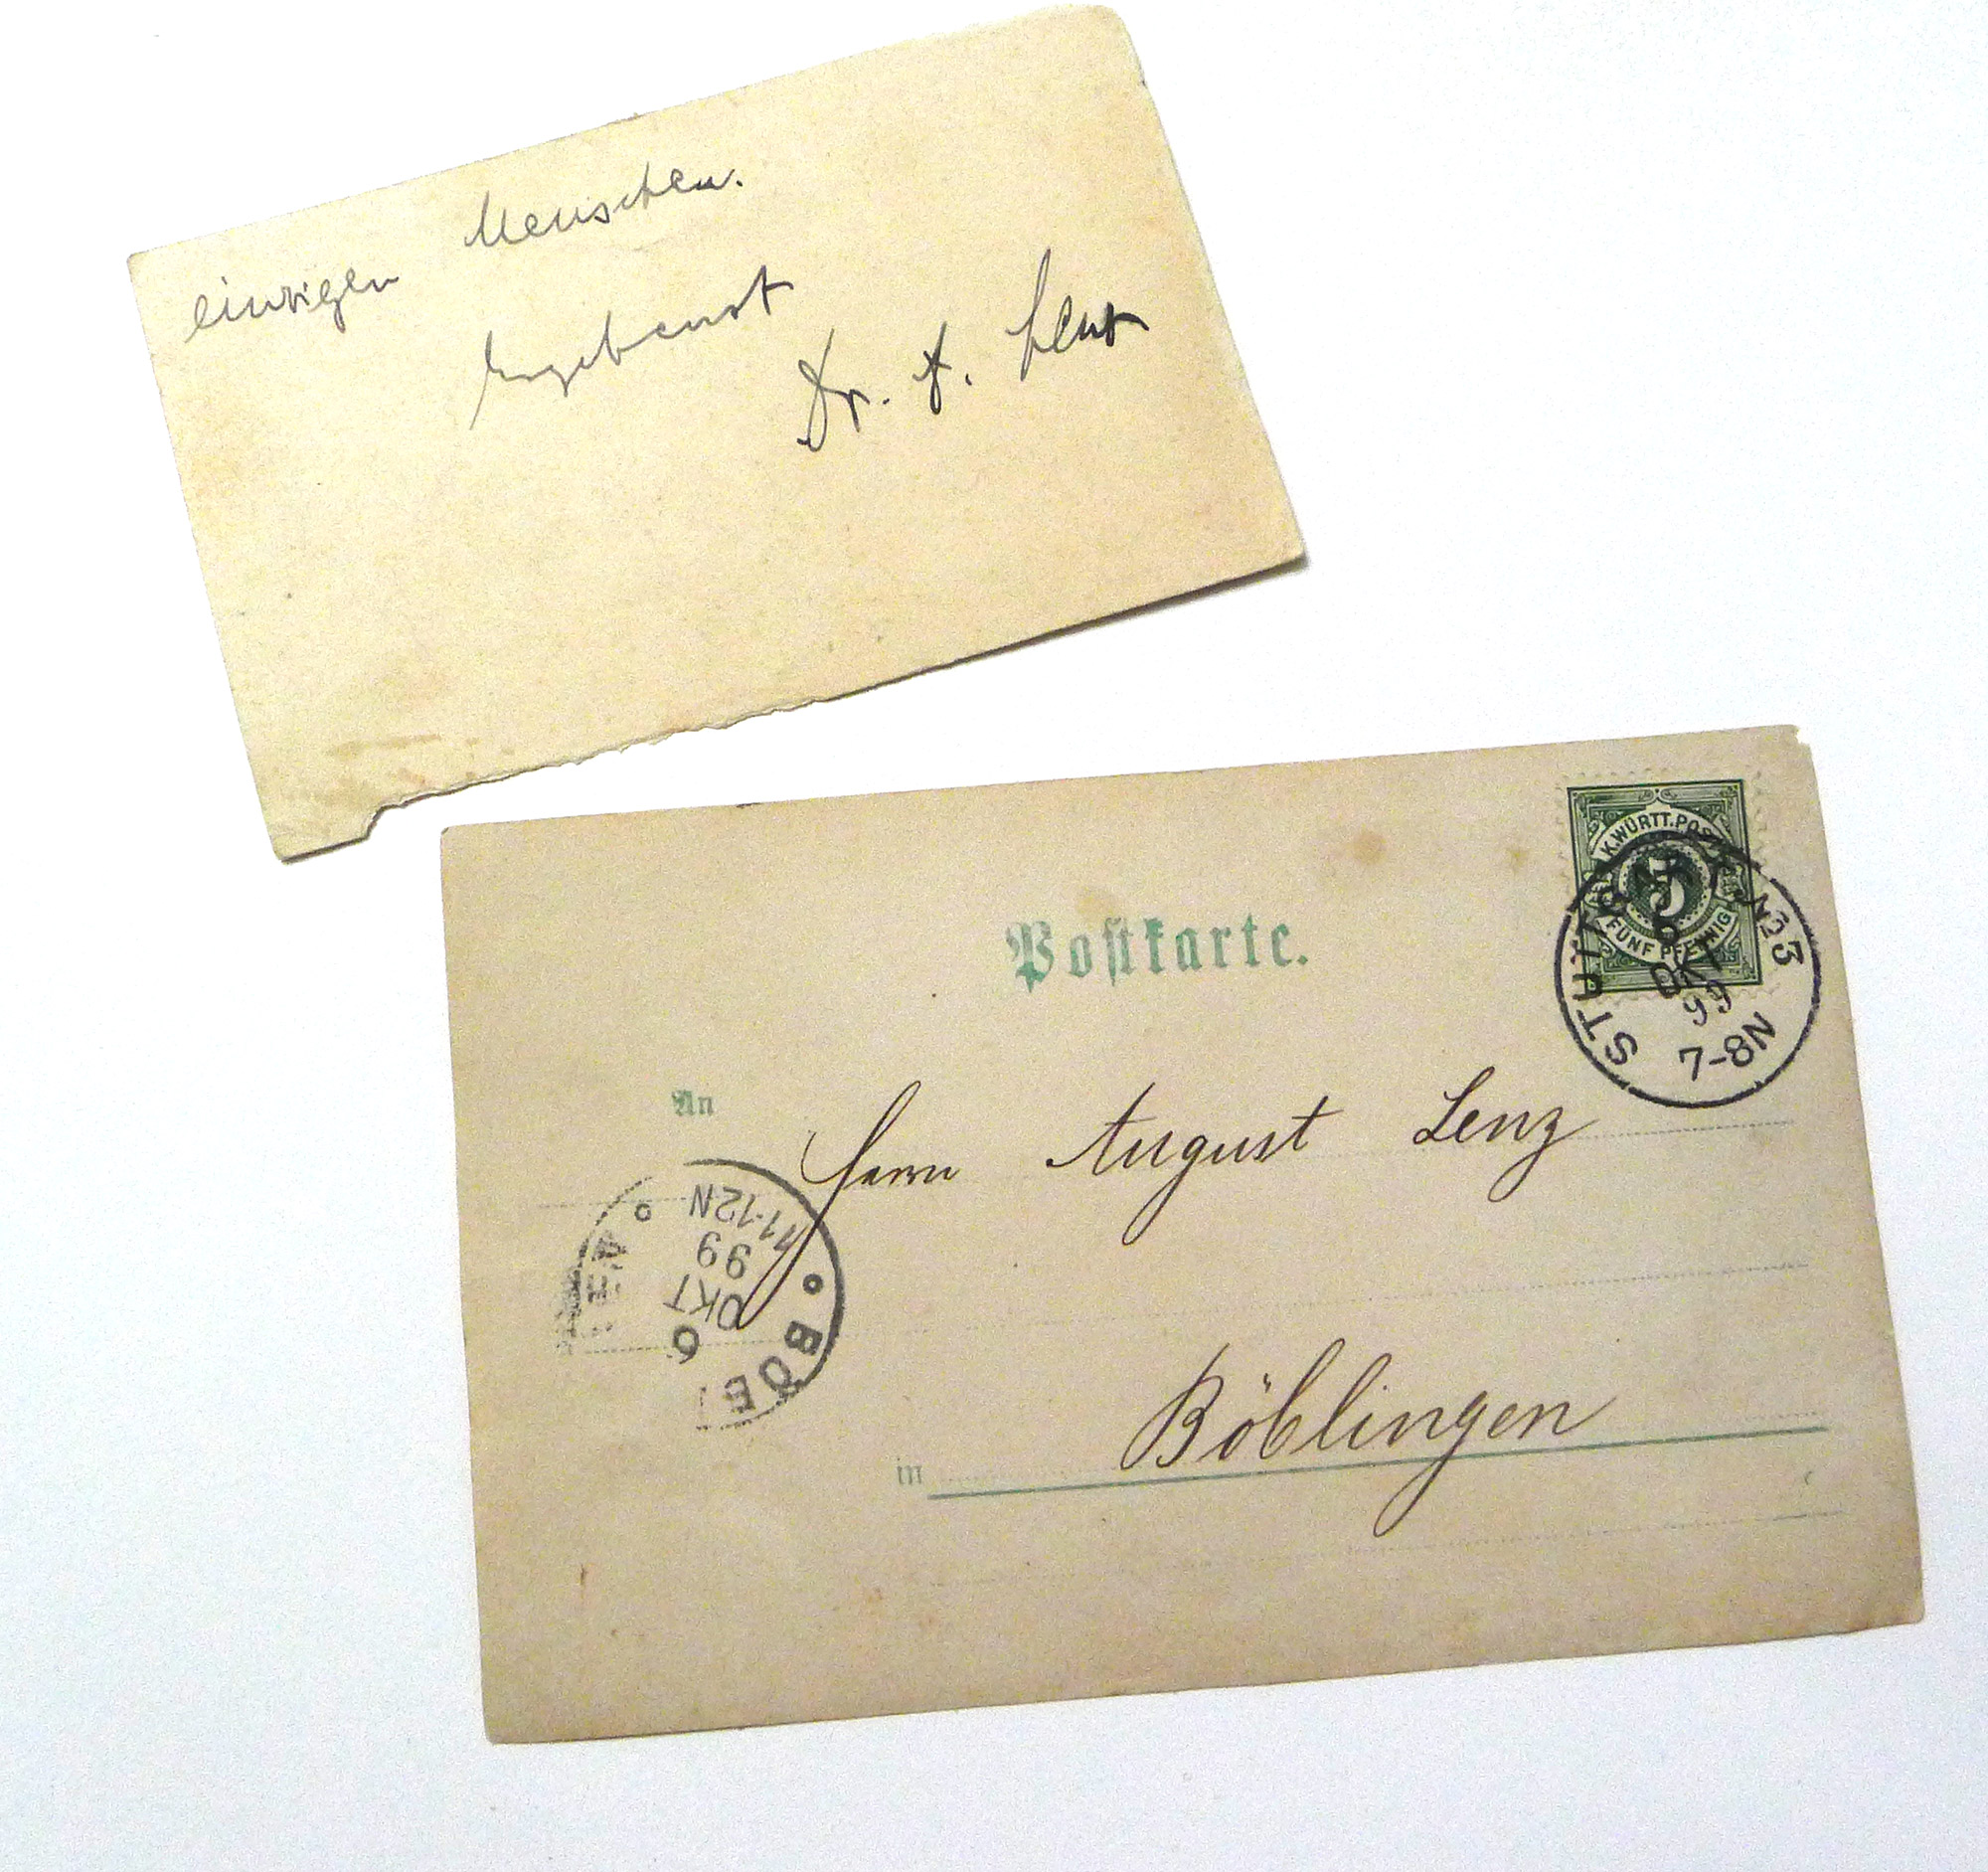 einzigen Menschen.
Ergebenst
Dr. A. Lenz
K.WÜRTT.POST
5
FÜNF PFENNIG
STUTTGART No 23
6
OKT
99
7-8N
Postkarte.
An
Herrn August Lenz
BÖBLINGEN
6
OKT
99
11-12N
in Böblingen